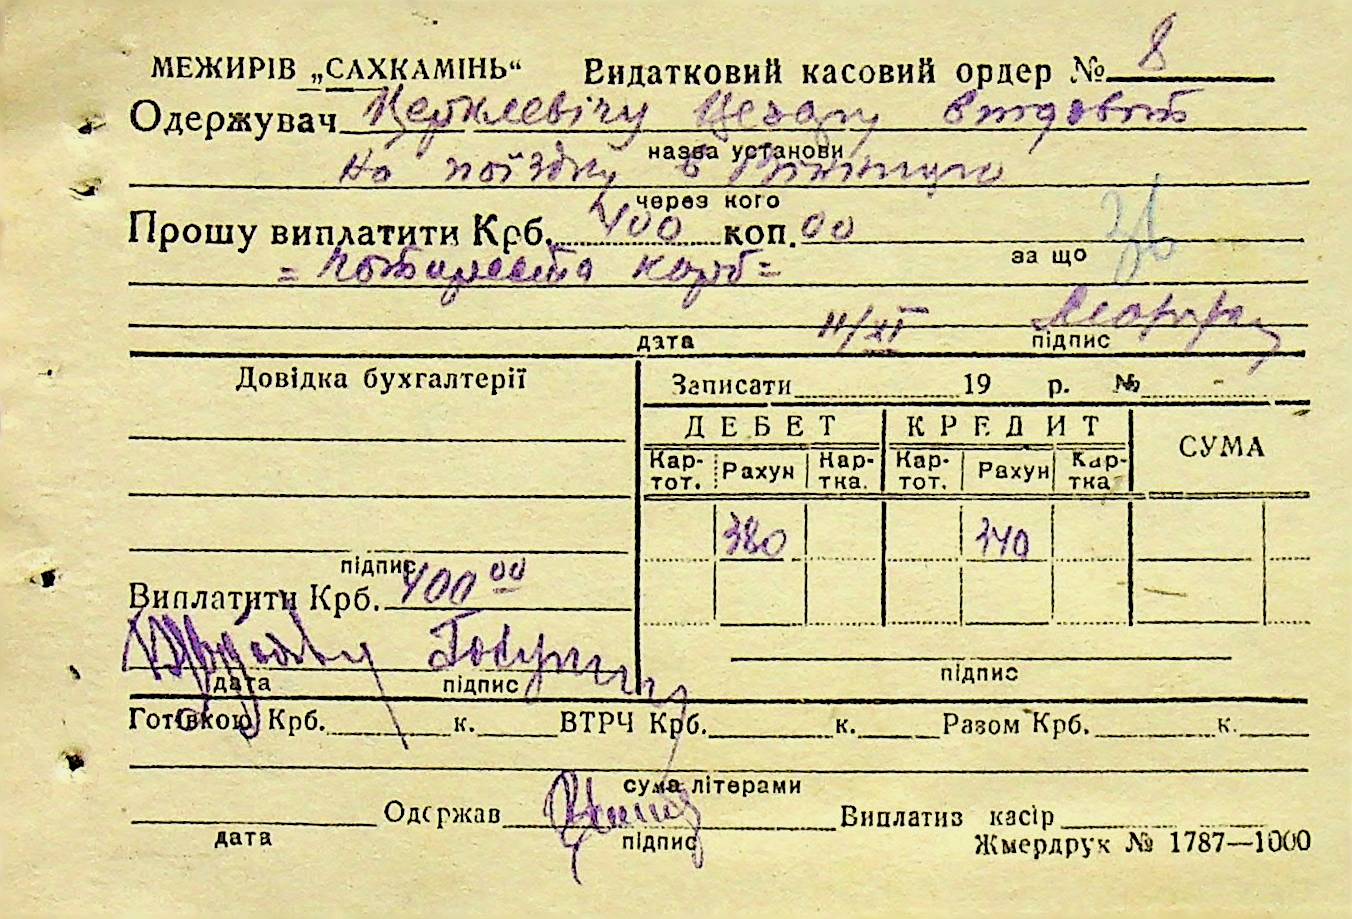 МЕЖИРІВ „САХКАМІНЬ“ Видатковий касовий ордер № 8
Одержувач Церклевічу Цезару
назва установи
На поїздку в Вінницю
через кого
Прошу виплатити Крб. 400 коп. 00
за що
= Чотириста карб =
11/XI
дата підпис
Довідка бухгалтерії
Записати 19 р. №
ДЕБЕТ КРЕДИТ СУМА
Кар-тот. Рахун Кар-тка. Кар-тот. Рахун Кар-тка
380 340
підпис
Виплатити Крб. 400 00
дата підпис
підпис
Готівкою Крб. к. ВТРЧ Крб. к. Разом Крб. к.
сума літерами
Одержав Виплатив касір
дата підпис
Жмердрук № 1787—1000